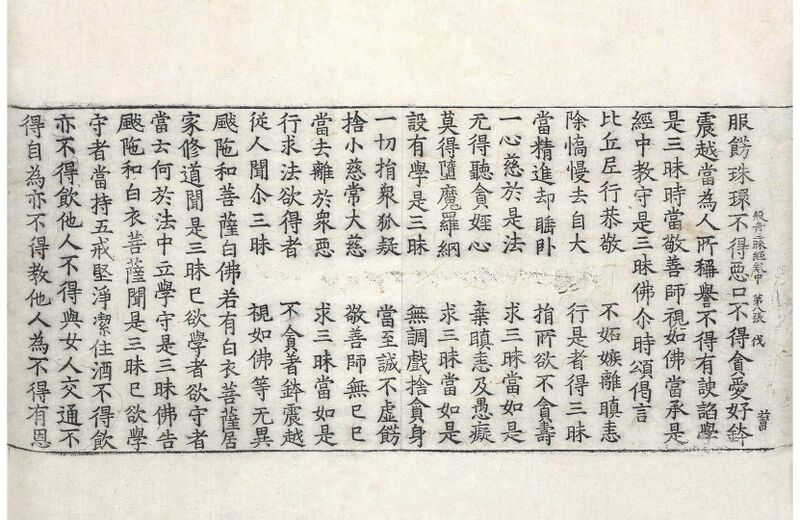 服飾珠環不得惡口不得貪愛好鉢
般舟三昧經卷中 第八張 伐
震越當為人所稱譽不得有諛諂學
是三昧時當敬善師視如佛當承是
經中教守是三昧佛尒時頌偈言
比丘尼行恭敬 不妬嫉離瞋恚
除憍慢去自大 行是者得三昧
當精進却睡卧 捐所欲不貪壽
一心慈於是法 求三昧當如是
无得聽貪婬心 棄瞋恚及愚癡
莫得隨魔羅網 求三昧當如是
設有學是三昧 無調戲捨貪身
一切捐衆狐疑 當至誠不虛飾
捨小慈常大慈 敬善師無已已
當去離於衆惡 求三昧當如是
行求法欲得者 不貪著鉢震越
從人聞尒三昧 視如佛等无異
颰陁和菩薩白佛若有白衣菩薩居
家修道聞是三昧已欲學者欲守者
當云何於法中立學守是三昧佛告
颰陁和白衣菩薩聞是三昧已欲學
守者當持五戒堅淨潔住酒不得飲
亦不得飲他人不得與女人交通不
得自為亦不得教他人為不得有恩